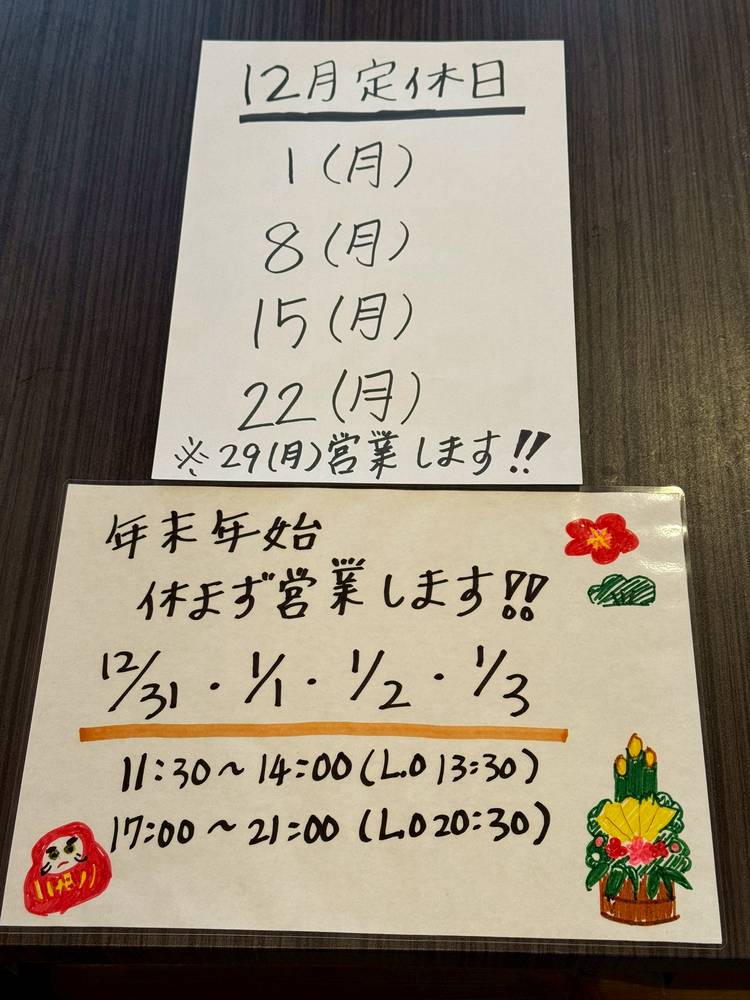 12月定休日
1(月)
8(月)
15(月)
22(月)
※29(月)営業します!!
年末年始
休まず営業します!!
12/31・1/1・1/2・1/3
11:30～14:00(L.O 13:30)
17:00～21:00(L.O 20:30)